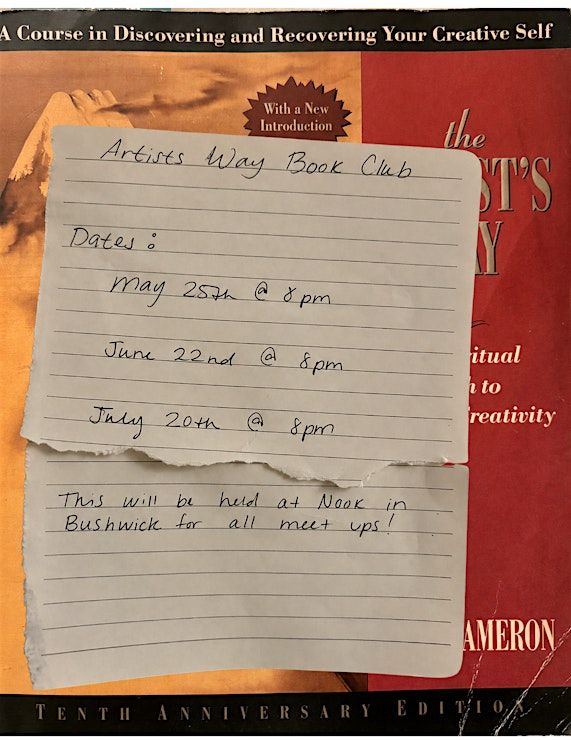 A Course in Discovering and Recovering Your Creative Self
With a New
Introduction
the
ST'S
Artists Way Book Club
Dates:
May 25th @ 8pm
June 22nd @ 8pm
July 20th @ 8pm
This will be held at Nook in
Bushwick for all meet ups!
to
Creativity
AMERON
TENTH ANNIVERSARY EDITION